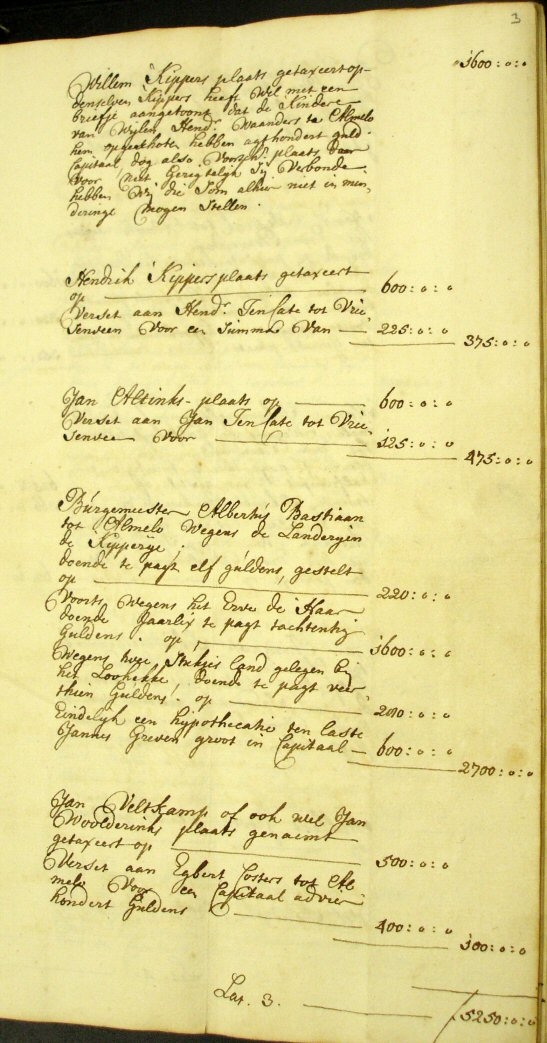 3
Willem Kippers plaats getaxeert op- 1600:0:0
denselven Kippers heeft wel met een
briefje aangetoont dat de Kindere
van Wijlen Hendr. Waanders te Almelo
hem opgeschoten hebben agthondert guld.
Capitaal dog also voorsch. plaats daar
voor niet Geregtelijk is Verbonde
hebben Wij die Som alhier niet in min,
deringe mogen stellen.
Hendrik Kippers plaats getaxeert
op 600:0:0
Verset aan Hendr. Ten Cate tot Vrie,
senveen Voor een Summa Van 225:0:0
375:0:0
Jan Altinks- plaats op 600:0:0
Verset aan Jan Ten Cate tot Vrie,
senvee Voor 125:0:0
475:0:0
Burgemeester Albertus Bastiaan
tot Almelo Wegens de Landeryen
de Kipperije.
doende te pagt elf guldens, gestelt
op 220:0:0
Voorts Wegens het Erve de Haar
doende Jaarlix te pagt tachtentig
Guldens. op 1600:0:0
Wegens twe Stukjes land gelegen bij
het Loohekke, doende te pagt veer,
thien Guldens! op 280:0:0
Eindelijk een hypothecatie ten laste
Jannes Greven groot in Capitaal 600:0:0
2700:0:0
Jan Veltkamp of ook wel Jan
Woolderinks plaats genaemt
getaxeert op 500:0:0
Verset aan Egbert Costers tot Al
melo Voor een Capitaal ad vier
hondert Guldens 400:0:0
100:0:0
Lat. 3. 5250:0:0